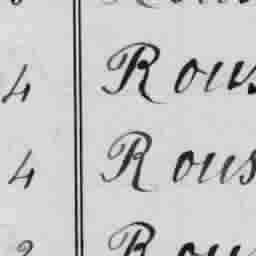 4 Rous
4 Rous
2 Rou